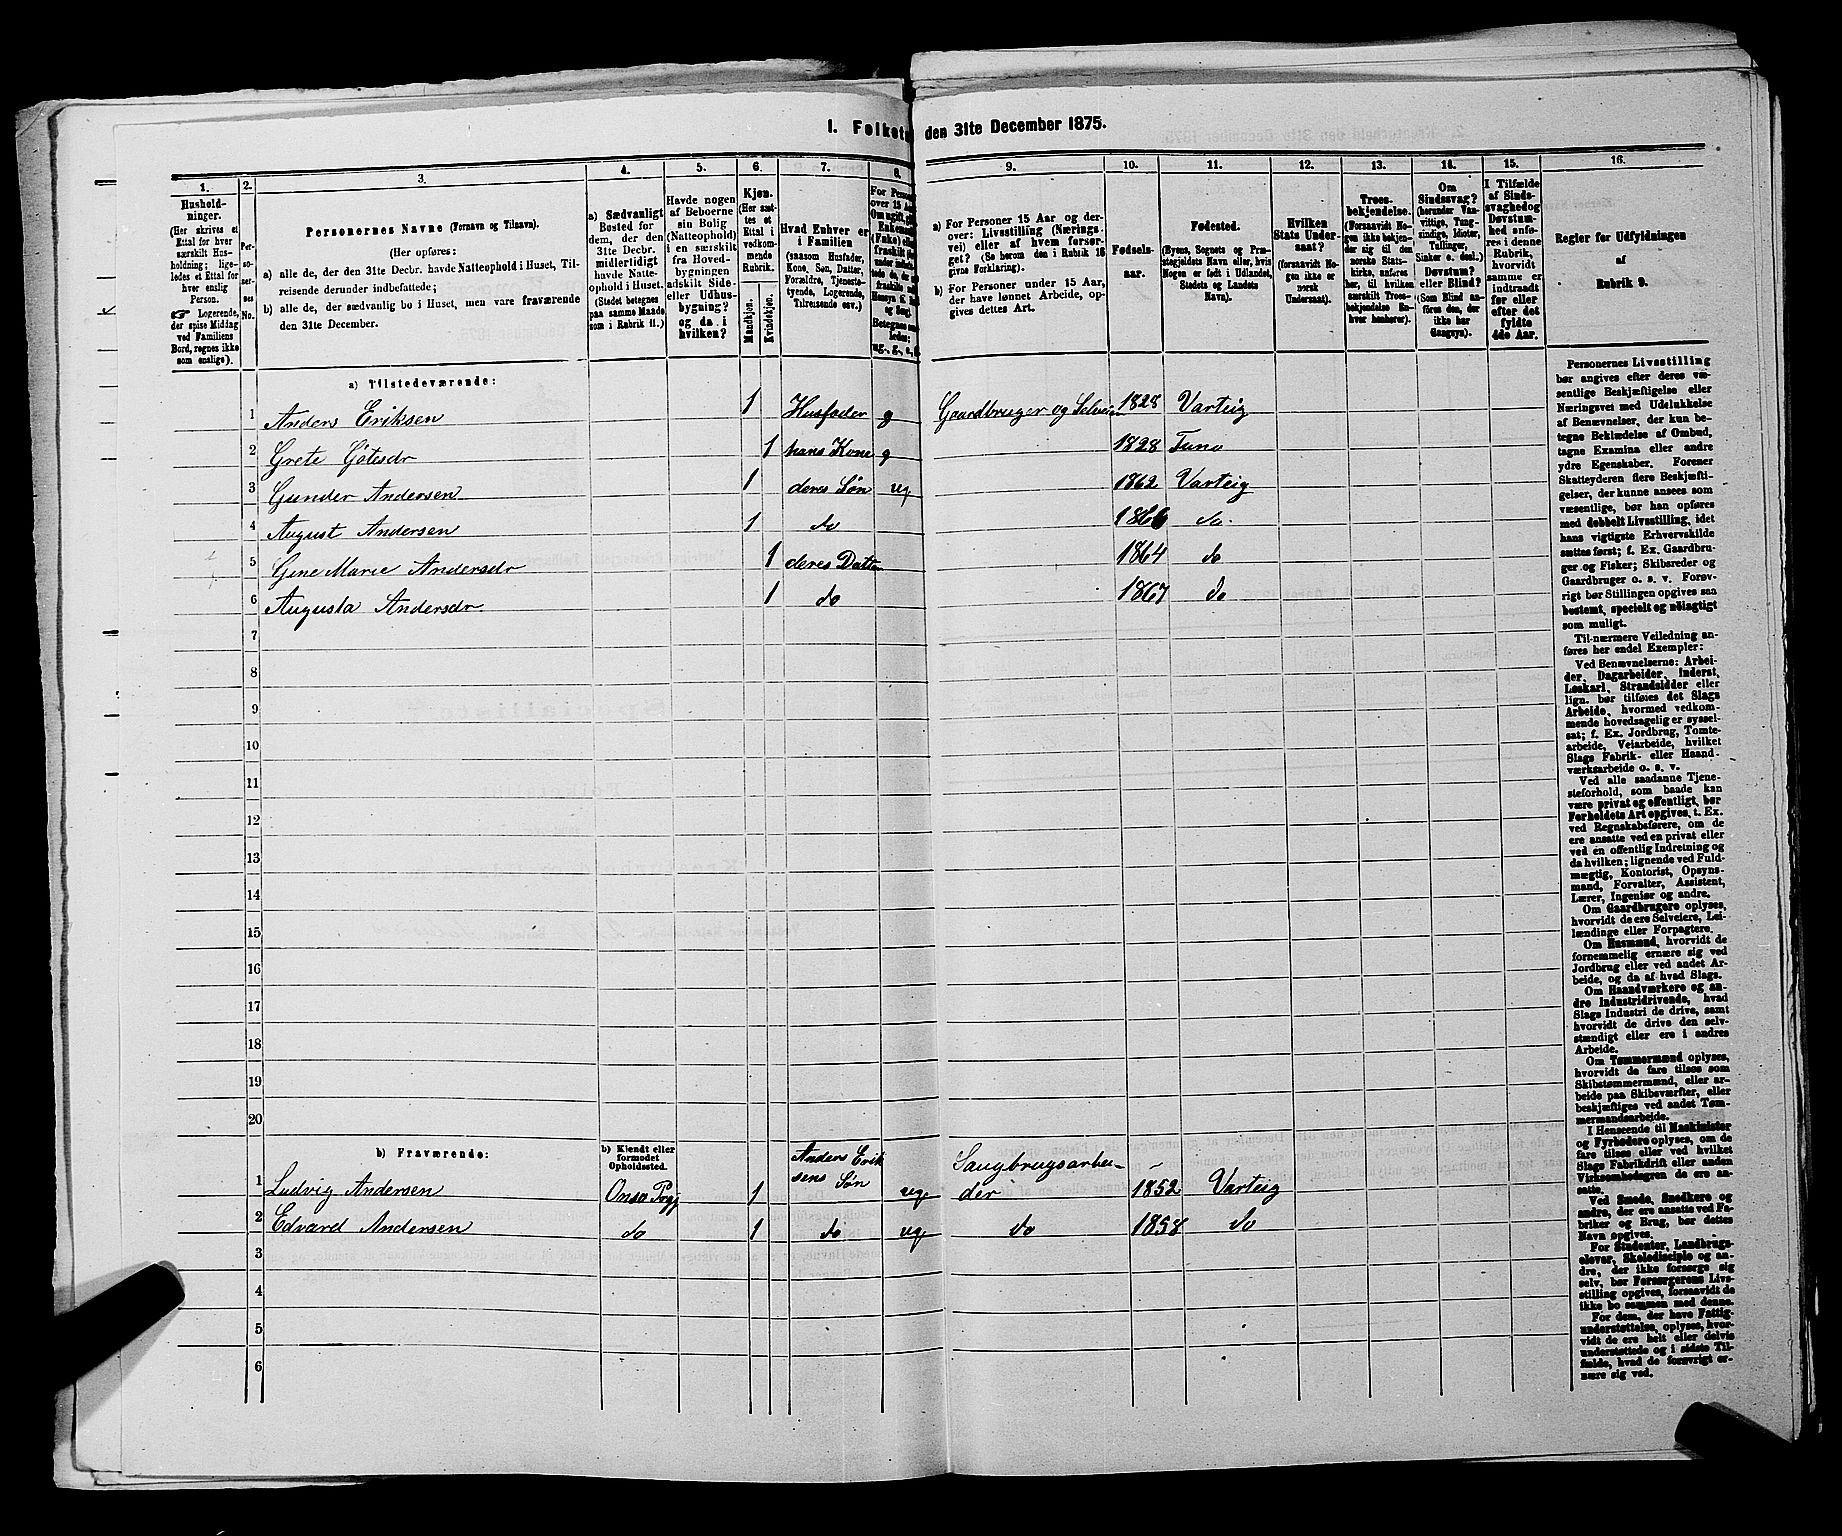 I. Folketæ
den 31te December 1875.
1.
2.
3.
4.
5.
6.
7.
8.
9.
10.
11.
12.
13.
14.
15.
16.
Hushold-
ninger.
(Her skrives et
Ettal for hver
særskilt Hus-
holdning; lige-
ledes et Ettal for
hver enslig
Person.
☛ Logerende,
der spise Middag
ved Familiens
Bord, regnes ikke
som enslige).
Per-
so-
ner-
nes
No.
Personernes Navne (Fornavn og Tilnavn).
(Her opføres:
a) alle de, der den 31te Decbr. havde Natteophold i Huset, Til-
reisende derunder indbefattede;
b) alle de, der sædvanlig bo i Huset, men vare fraværende
den 31te December.
a) Sædvanligt
Bosted for
dem, der den
31te Decbr.
midlertidigt
havde Natte-
ophold i Huset.
(Stedet betegnes
paa samme Maade
som i Rubrik 11.)
Havde nogen
af Beboerne
sin Bolig
(Natteophold)
i en særskilt
fra Hoved-
bygningen
adskilt Side-
eller Udhus-
bygning?
og da i
hvilken?
Kjøn.
(Her sæt-
tes et
Ettal i
vedkom-
mende
Rubrik.
Mandkjøn.
Kvindekjøn.
Hvad Enhver er
i Familien
(saasom Husfader,
Kone, Søn, Datter,
Forældre, Tjeneste-
tyende, Logerende,
Tilreisende osv.)
For Person
over 15 Aar
a) For Personer 15 Aar og der-
over: Livsstilling (Nærings-
vei) eller af hvem forsør-
get? (Se herom den i Rubrik 16
givne Forklaring).
b) For Personer under 15 Aar,
der have lønnet Arbeide, op-
gives dettes Art.
Fødsels-
aar.
Fødested.
(Byens, Sognets og Præ-
stegjeldets Navn eller, hvis
Nogen er født i Udlandet,
Stedets og Landets
Navn).
Hvilken
Stats Under-
saat?
(forsaavidt No-
gen ikke er
norsk
Undersaat).
Troes-
bekjendelse.
(Forsaavidt No-
gen ikke bekjen-
der sig til den
norske Stats-
kirke, anføres
her, til hvilken
særskilt Troes-
bekjendelse En-
hver henhører).
Om
Sindssvag?
(herunder Van-
vittige, Tung-
sindige, Idioter,
Tullinger,
Sinker o. desl.)
Døvstum?
eller Blind?
(Som Blind an-
føres den, der
ikke har
Gangsyn).
I Tilfælde
af Sinds-
svaghed og
Døvstum-
hed anfø-
res i denne
Rubrik,
hvorvidt
samme er
indtraadt
før eller
efter det
fyldte
4de Aar.
Regler for Udfyldningen
af
Rubrik 9.
a) Tilstedeværende:
1 Anders Eriksen 1 Husfader g Gaardbruger og Selveier 1828 Varteig
2 Grete Gotesdr 1 hans Kone g 1828 Tune
3 Gunder Andersen 1 deres Søn ug 1862 Varteig
4 August Andersen 1 do 1866 do
5 Gine Marie Andersdr 1 deres Datter 1864 do
6 Augusta Andersdr 1 do 1867 do
7
8
9
10
11
12
13
14
15
16
17
18
19
20
b) Fraværende:
b) Kjendt eller
formodet
Opholdssted.
Anders Erik
sens Søn
Saugbrugsarbei-
1 Ludvig Andersen Onsø Prgj 1 ug der 1852 Varteig
2 Edvard Andersen do 1 do ug do 1858 do
3
4
5
6
Personernes Livsstilling
bør angives efter deres væ-
sentlige Beskjæftigelse eller
Næringsvei med Udelukkelse
af Benævnelser, der kun be-
tegne Beklædelse af Ombud,
tagne Examina eller andre
ydre Egenskaber. Forener
Skatteyderen flere Beskjæfti-
gelser, der kunne ansees som
væsentlige, bør han opføres
med dobbelt Livsstilling, idet
hans vigtigste Erhvervskilde
sættes først; f. Ex. Gaardbru-
ger og Fisker; Skibsreder og
Gaardbruger o. s. v. Forøv-
rigt bør Stillingen opgives saa
bestemt, specielt og nøiagtigt
som muligt.
Til nærmere Veiledning an-
føres her endel Exempler:
Ved Benævnelserne: Arbei-
der, Dagarbeider, Inderst,
Løskarl, Strandsidder eller
lign. bør tilføies det Slags
Arbeide, hvormed vedkom-
mende hovedsagelig er syssel-
sat; f. Ex. Jordbrug, Tomte-
arbeide, Veiarbeide, hvilket
Slags Fabrik- eller Haand-
værksarbeide o. s. v.
Ved alle saadanne Tjene-
steforhold, som baade kan
være privat og offentligt, bør
Forholdets Art opgives, t. Ex.
ved Regnskabsførere, om de
ere ansatte ved en privat eller
ved en offentlig Indretning og
da hvilken; lignende ved Fuld-
mægtig, Kontorist, Opsyns-
mand, Forvalter, Assistent,
Lærer, Ingeniør og andre.
Om Gaardbrugere oplyses,
hvorvidt de ere Selveiere, Lei-
lændinge eller Forpagtere.
Om Husmænd, hvorvidt de
fornemmelig ernære sig ved
Jordbrug eller ved andet Ar-
beide, og da af hvad Slags.
Om Haandværkere og an-
dre Industridrivende, hvad
Slags Industri de drive, samt
hvorvidt de drive den selv-
stændigt eller ere i andres
Arbeide.
Om Tømmermænd oplyses,
hvorvidt de fare tilsøs som
Skibstømmermænd, eller ar-
beide paa Skibsværfter, eller
beskjæftiges ved andet Tøm-
mermandsarbeide.
I Henseende til Maskinister
og Fyrbødere oplyses, om de
fare tilsøs eller ved hvilket
Slags Fabrikdrift eller anden
Virksomhedsgren de ere an-
satte.
Ved Smede, Snedkere og
andre, der ere ansatte ved Fa-
briker og Brug, bør dettes
Navn opgives.
For Studenter, Landbrugs-
elever, Skoledisciple og an-
dre, der ikke forsørge sig
selv, bør Forsørgerens Livs-
stilling opgives, forsaavidt de
ikke bo sammen med denne.
For dem, der have Fattig-
understøttelse, oplyses, hvor-
vidt de ere helt eller delvis
understøttede og i sidste Til-
fælde, hvad de forøvrigt er-
nære sig ved.